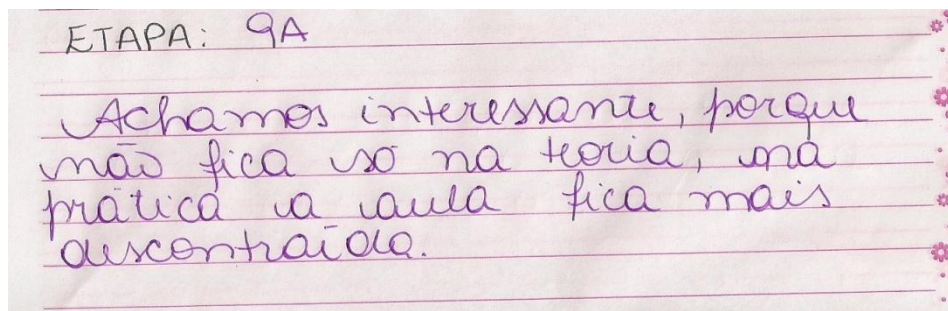 ETAPA: 9A
Achamos interessante, porque
não fica só na teoria, na
prática a aula fica mais
descontraída.